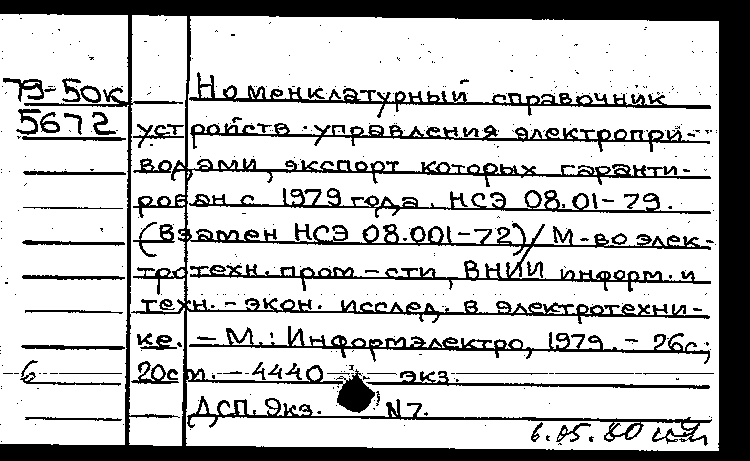 79-50к
5672
Номенклатурный справочник
устройств управления электропри-
водами, экспорт которых гаранти-
рован с 1979 года. НСЭ 08.01-79.
(Взамен НСЭ 08.001-72)/ М-во элек-
тротехн. пром-сти, ВНИИ информ. и
техн.-экон. исслед. в электротехни-
ке. - М.: Информэлектро, 1979. - 26с;
6 20см. - 4440 экз.
ДСП. Экз. N7.
6.05.80